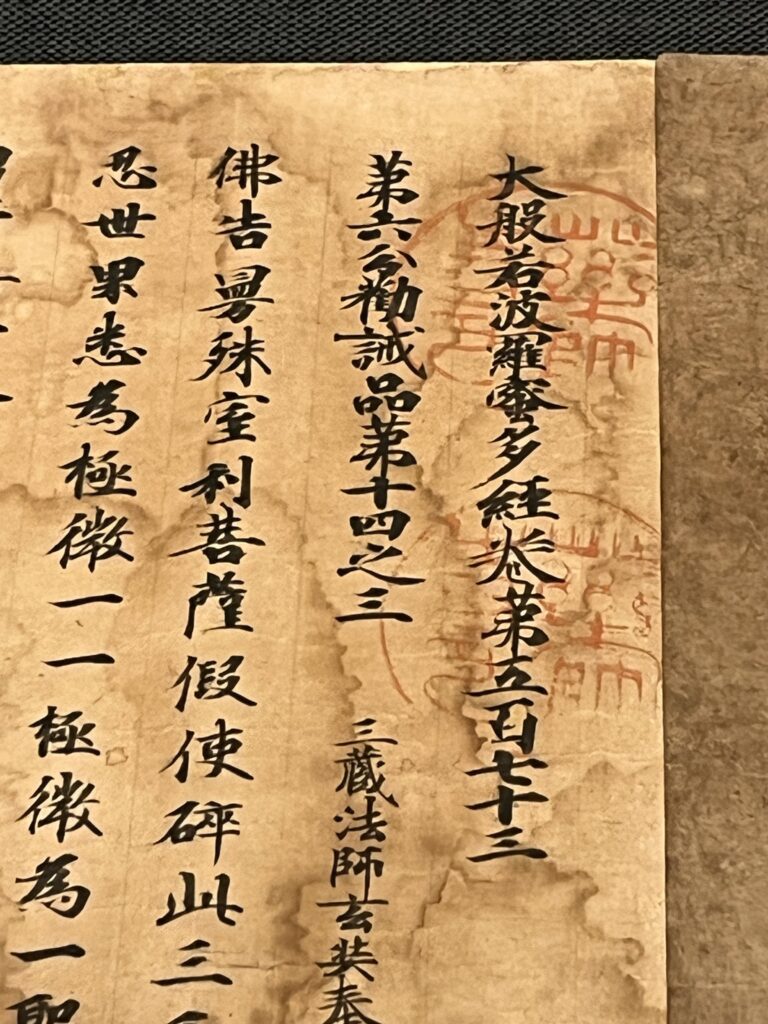 大般若波羅蜜多經卷第五百七十三
第六分勸誡品第十四之三　三藏法師玄奘奉
佛告曼殊室利菩薩假使碎此三
忍世界悉為極微一一極微為一